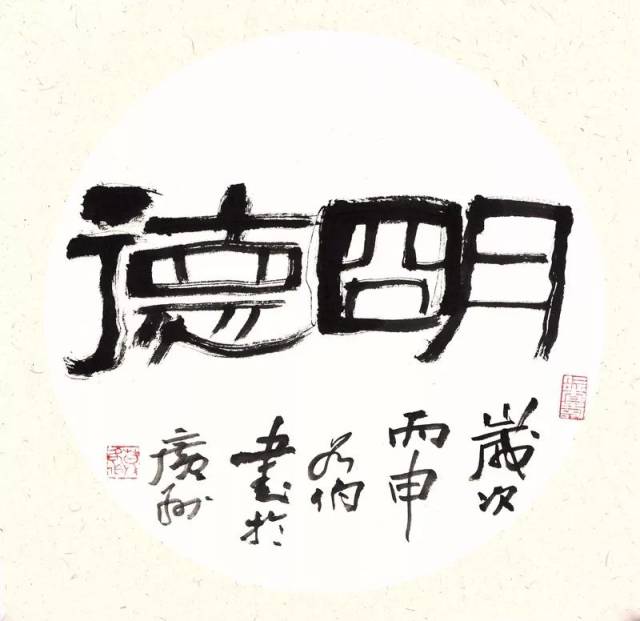 明德
歲次
丙申
伯
書於
廣州